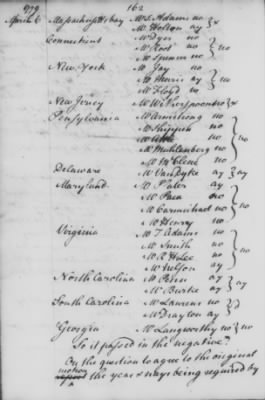 1779 162
March 6 Massachusetts bay Mr S. Adams no
Mr Holton ay x
Connecticut Mr Dyer no
Mr Root no no
Mr Spencer no
New-York Mr Jay no
Mr Morris ay no
Mr Floyd no
New Jersey Mr Witherspoon no x
Pensylvania Mr Armstrong no
Mr Shippen no
Mr Atlee no no
Mr Muhlenberg no
Mr McClene no
Delaware Mr Van Dyke ay ay
Maryland Mr Plater ay
Mr Paca no no
Mr Carmichael no
Mr Henry no
Virginia Mr T Adams no
Mr Smith no no
Mr R H Lee no
Mr Nelson ay
North Carolina Mr Penn ay ay
Mr Burke ay
South Carolina Mr Laurens no
Mr Drayton ay
Georgia Mr Langworthy no no
So it passed in the negative.
On the question to agree to the original
motion the yeas & nays being required by